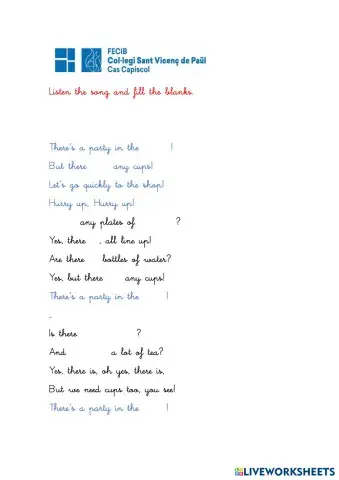 FECIB
Col·legi Sant Vicenç de Paül
Cas Capiscol
Listen the song and fill the blanks.
There's a party in the !
But there any cups!
Let's go quickly to the shop!
Hurry up, Hurry up!
any plates of ?
Yes, there , all line up!
Are there bottles of water?
Yes, but there any cups!
There's a party in the !
-
Is there ?
And a lot of tea?
Yes, there is, oh yes, there is,
But we need cups too, you see!
There's a party in the !
LIVEWORKSHEETS